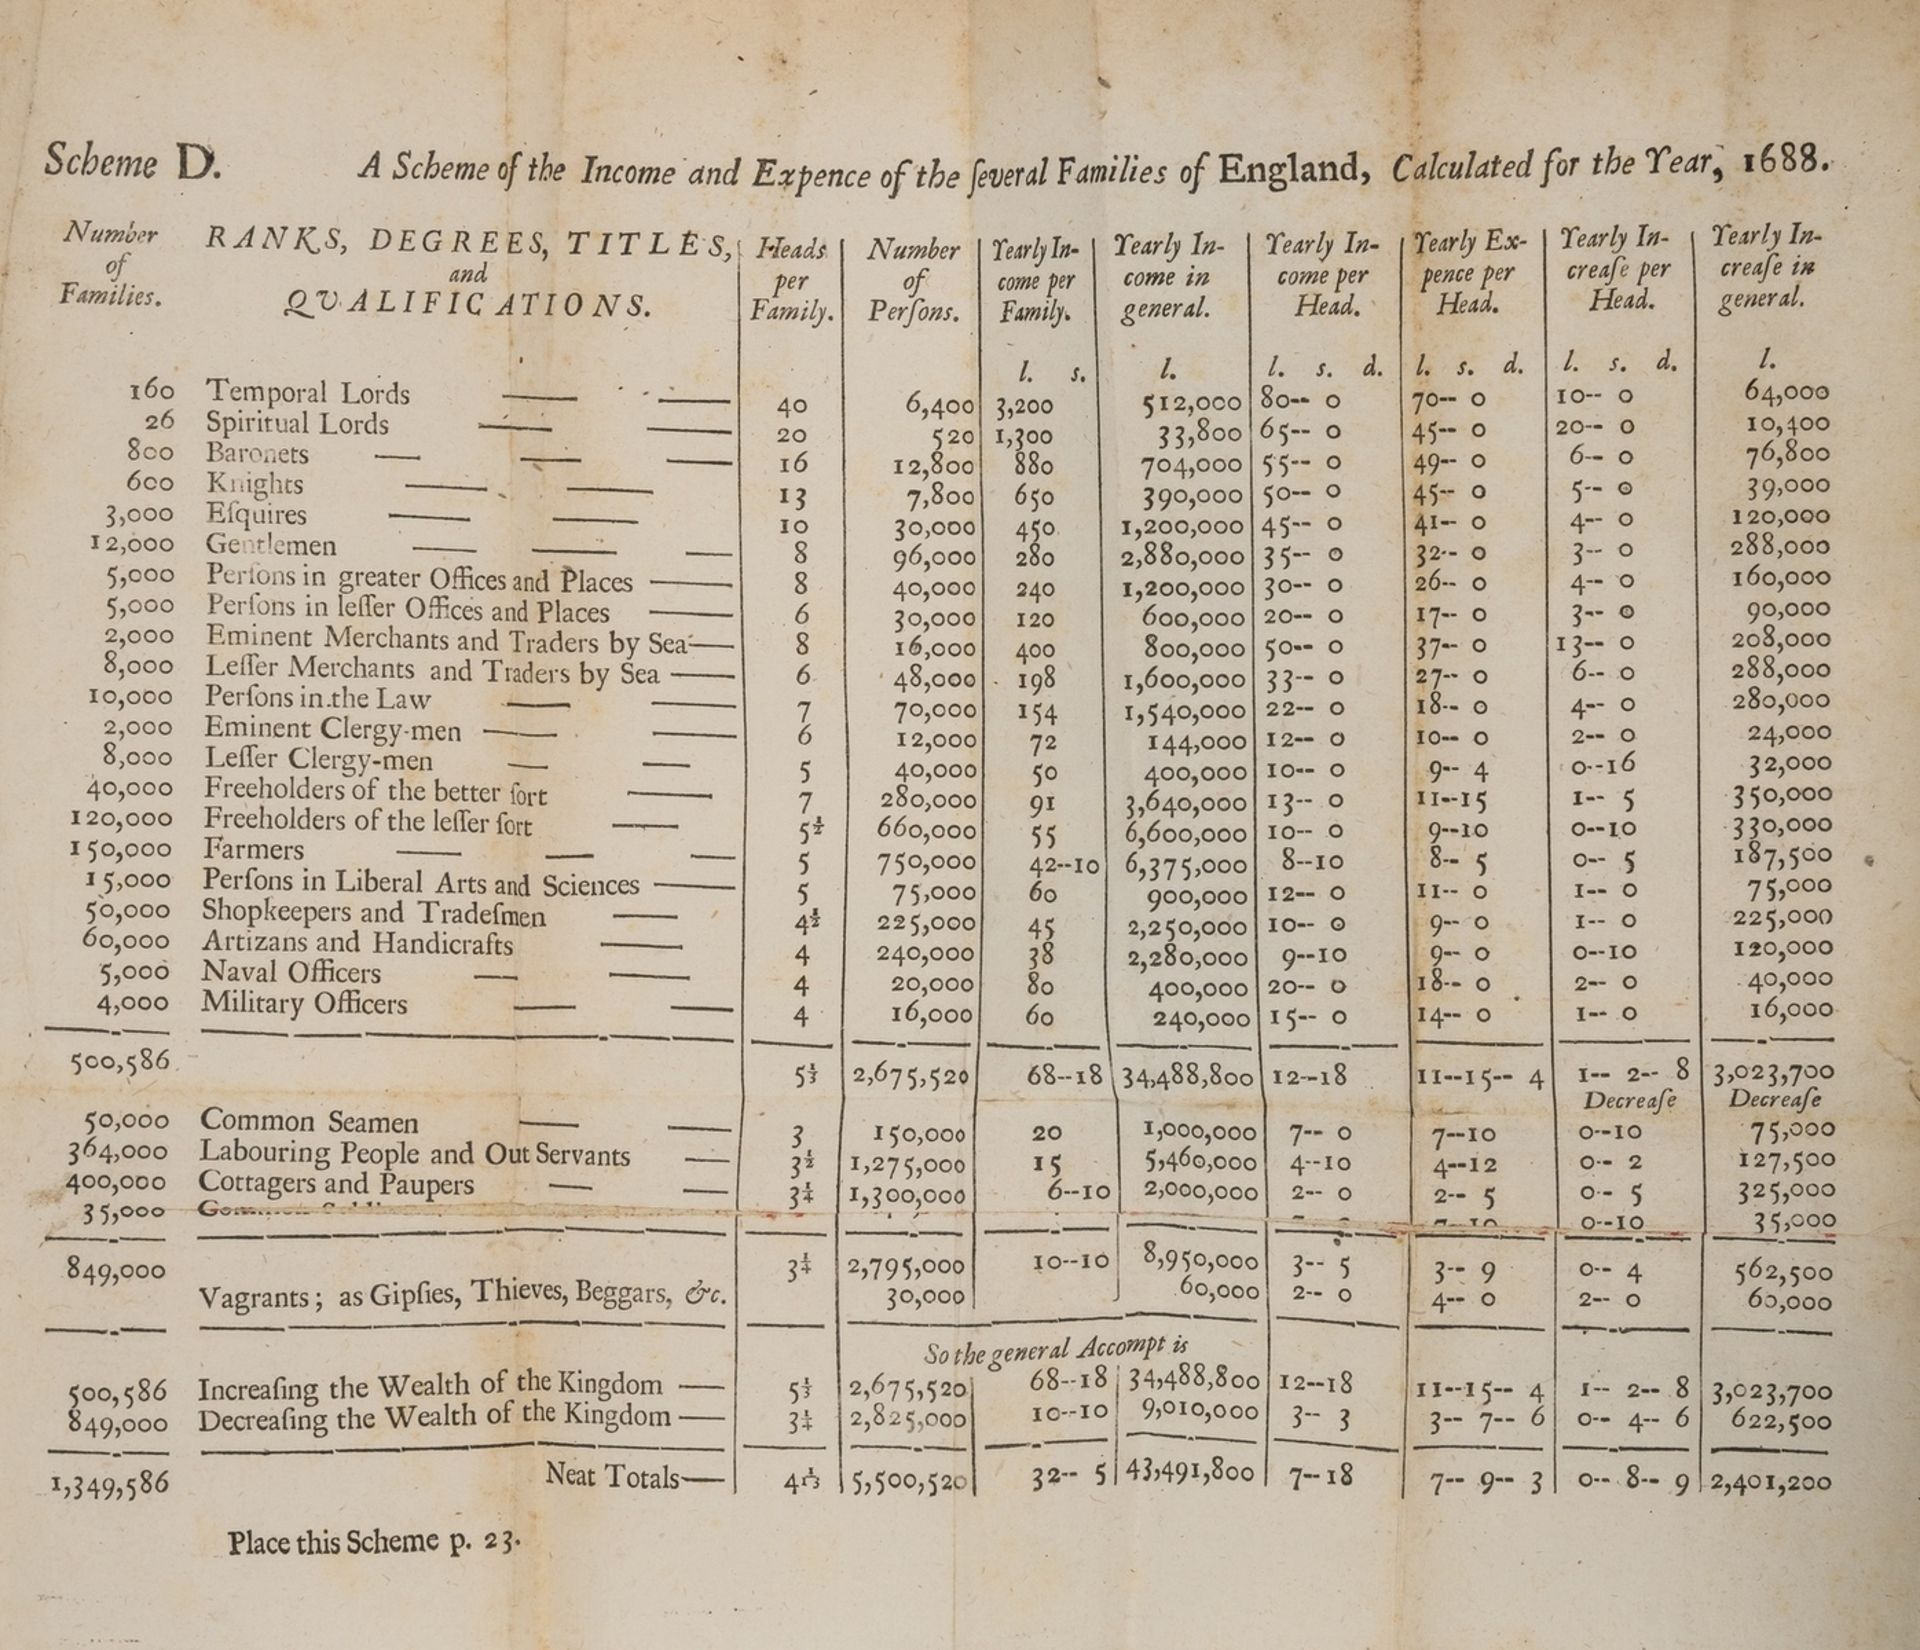 Scheme D. A Scheme of the Income and Expence of the ſeveral Families of England, Calculated for the Year, 1688.
Number of Families. RANKS, DEGREES, TITLES, and QVALIFICATIONS. Heads per Family. Number of Perſons. Yearly In-come per Family. Yearly In-come in general. Yearly In-come per Head. Yearly Ex-pence per Head. Yearly In-creaſe per Head. Yearly In-creaſe in general.
l. s. l. l. s. d. l. s. d. l. s. d. l.
160 Temporal Lords 40 6,400 3,200 512,000 80-- 0 70-- 0 10-- 0 64,000
26 Spiritual Lords 20 520 1,300 33,800 65-- 0 45-- 0 20-- 0 10,400
800 Baronets 16 12,800 880 704,000 55-- 0 49-- 0 6-- 0 76,800
600 Knights 13 7,800 650 390,000 50-- 0 45-- 0 5-- 0 39,000
3,000 Eſquires 10 30,000 450 1,200,000 45-- 0 41-- 0 4-- 0 120,000
12,000 Gentlemen 8 96,000 280 2,880,000 35-- 0 32-- 0 3-- 0 288,000
5,000 Perſons in greater Offices and Places 8 40,000 240 1,200,000 30-- 0 26-- 0 4-- 0 160,000
5,000 Perſons in leſſer Offices and Places 6 30,000 120 600,000 20-- 0 17-- 0 3-- 0 90,000
2,000 Eminent Merchants and Traders by Sea 8 16,000 400 800,000 50-- 0 37-- 0 13-- 0 208,000
8,000 Leſſer Merchants and Traders by Sea 6 48,000 198 1,600,000 33-- 0 27-- 0 6-- 0 288,000
10,000 Perſons in the Law 7 70,000 154 1,540,000 22-- 0 18-- 0 4-- 0 280,000
2,000 Eminent Clergy-men 6 12,000 72 144,000 12-- 0 10-- 0 2-- 0 24,000
8,000 Leſſer Clergy-men 5 40,000 50 400,000 10-- 0 9-- 4 0--16 32,000
40,000 Freeholders of the better ſort 7 280,000 91 3,640,000 13-- 0 11--15 1-- 5 350,000
120,000 Freeholders of the leſſer ſort 5½ 660,000 55 6,600,000 10-- 0 9--10 0--10 330,000
150,000 Farmers 5 750,000 42--10 6,375,000 8--10 8-- 5 0-- 5 187,500
15,000 Perſons in Liberal Arts and Sciences 5 75,000 60 900,000 12-- 0 11-- 0 1-- 0 75,000
50,000 Shopkeepers and Tradeſmen 4½ 225,000 45 2,250,000 10-- 0 9-- 0 1-- 0 225,000
60,000 Artizans and Handicrafts 4 240,000 38 2,280,000 9--10 9-- 0 0--10 120,000
5,000 Naval Officers 4 20,000 80 400,000 20-- 0 18-- 0 2-- 0 40,000
4,000 Military Officers 4 16,000 60 240,000 15-- 0 14-- 0 1-- 0 16,000
500,586 5⅓ 2,675,520 68--18 34,488,800 12--18 11--15-- 4 1-- 2-- 8 3,023,700
Decreaſe Decreaſe
50,000 Common Seamen 3 150,000 20 1,000,000 7-- 0 7--10 0--10 75,000
364,000 Labouring People and Out Servants 3½ 1,275,000 15 5,460,000 4--10 4--12 0-- 2 127,500
400,000 Cottagers and Paupers 3¼ 1,300,000 6--10 2,000,000 2-- 0 2-- 5 0-- 5 325,000
35,000 0--10 35,000
849,000 3¼ 2,795,000 10--10 8,950,000 3-- 5 3-- 9 0-- 4 562,500
Vagrants; as Gipſies, Thieves, Beggars, &c. 30,000 60,000 2-- 0 4-- 0 2-- 0 60,000
So the general Accompt is
500,586 Increaſing the Wealth of the Kingdom 5⅓ 2,675,520 68--18 34,488,800 12--18 11--15-- 4 1-- 2-- 8 3,023,700
849,000 Decreaſing the Wealth of the Kingdom 3¼ 2,825,000 10--10 9,010,000 3-- 3 3-- 7-- 6 0-- 4-- 6 622,500
1,349,586 Neat Totals 4 1/13 5,500,520 32-- 5 43,491,800 7--18 7-- 9-- 3 0-- 8-- 9 2,401,200
Place this Scheme p. 23.